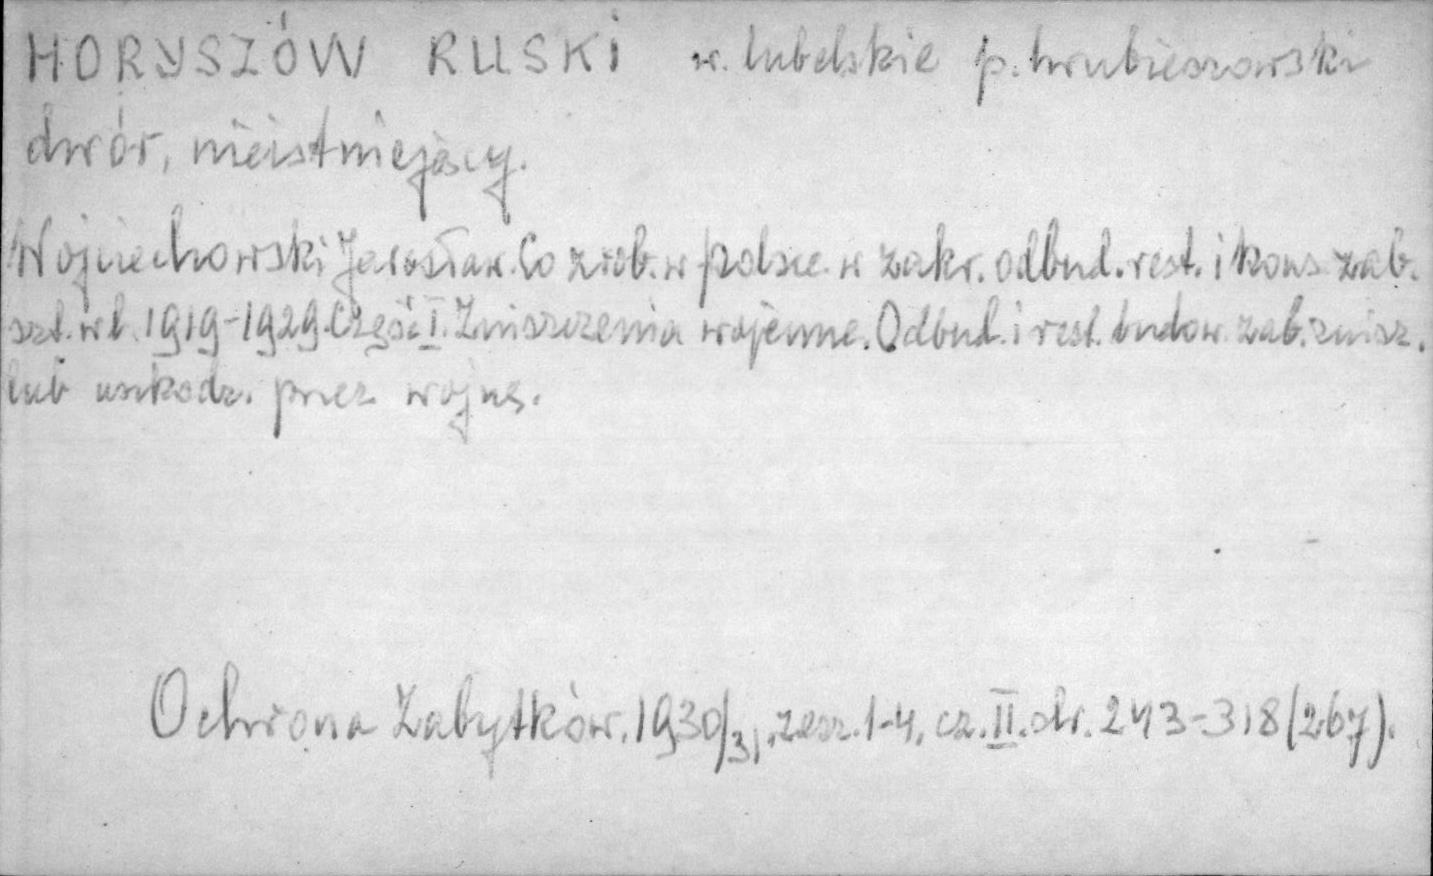 HORYSZÓW RUSKI w. lubelskie p. hrubieszowski
dwór, nieistniejący.
Wojciechowski Jarosław. Co zrob. w Polsce w zakr. odbud. rest. i kons. zab.
szt. w l. 1919-1929. Część I. Zniszczenia wojenne. Odbud. i rest. budow. zab. znisz.
lub uszkodz. przez wojnę.
Ochrona Zabytków. 1930/31, zesz. 1-4, cz. II. str. 243-318 (267).